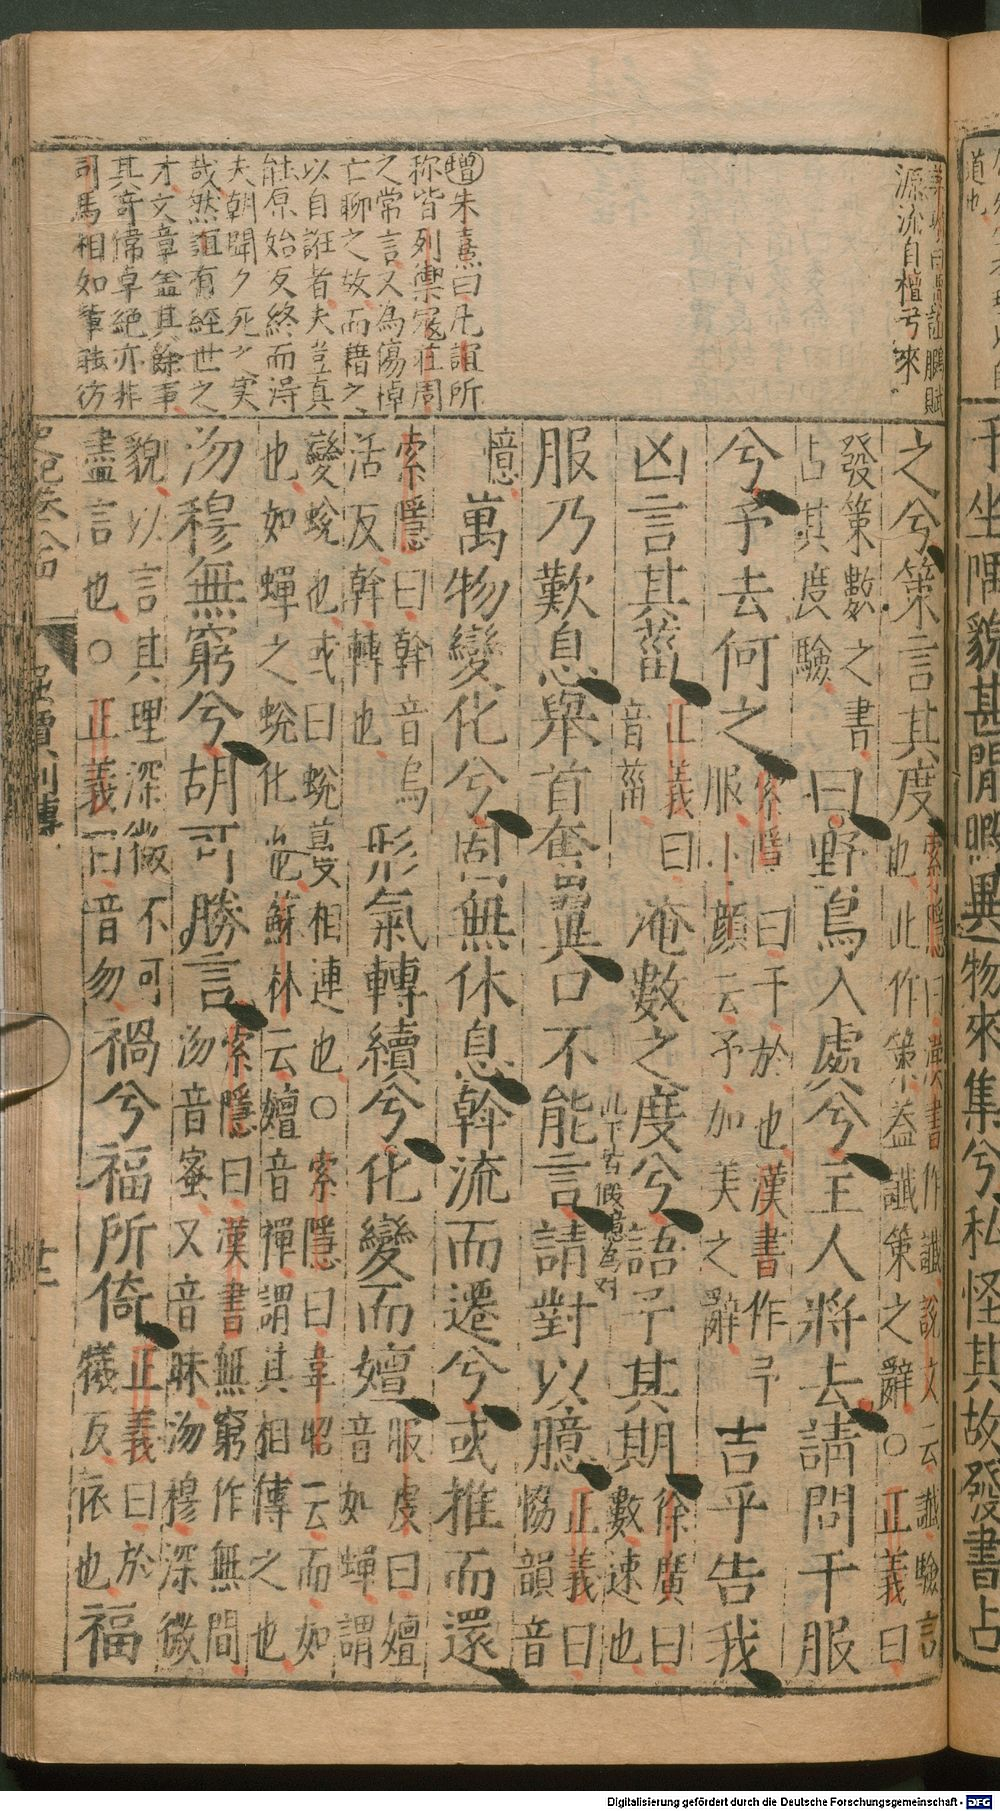 道也
于坐隅貌甚閒暇異物來集兮私怪其故發書占
鵩賦
源流自檀弓來
增朱熹曰凡誼所
称皆列禦寇莊周
之常言又為傷悼
亡聊之故而藉之
以自誑者夫豈真
能原始反終而淂
夫朝聞夕死之実
哉然誼有經世之
才文章盖其餘事
其奇偉卓絶亦非
司馬相如軰能彷
之兮策言其度索隱曰漢書作讖說文云讖驗言也此作策蓋讖策之辭○正義曰
發策數之書占其度驗曰野鳥入處兮主人將去請問于服
兮予去何之索隱曰于於也漢書作子服小顏云予加美之辭吉乎告我
凶言其菑正義曰音菑淹數之度兮語予其期徐廣曰數速也
服乃歎息舉首奮翼口不能言請對以臆正義曰協韻音
憶萬物變化兮固無休息斡流而遷兮或推而還
索隱曰斡音烏活反斡轉也形氣轉續兮化變而嬗服虔曰嬗音如蟬謂
變蛻也或曰蛻蔓相連也○索隱曰韋昭云而如也如蟬之蛻化也蘇林云嬗音禪謂其相傳之也
沕穆無窮兮胡可勝言索隱曰漢書無窮作無間沕音蜜又音昧沕穆深微
貌以言其理深微不可盡言也○正義曰音勿禍兮福所倚正義曰於犧反依也福
史記卷八十四
屈賈列傳
廿二
Digitalisierung gefördert durch die Deutsche Forschungsgemeinschaft - DFG